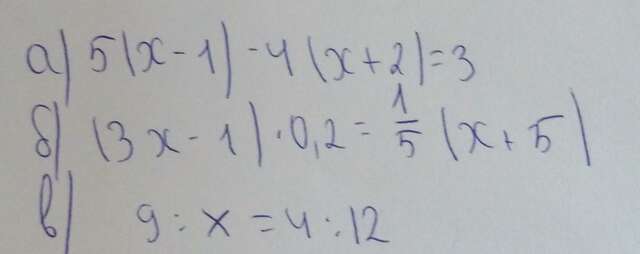 а) 5(x-1)-4(x+2)=3
б) (3x-1)·0,2=1/5(x+5)
в) 9:x=4:12